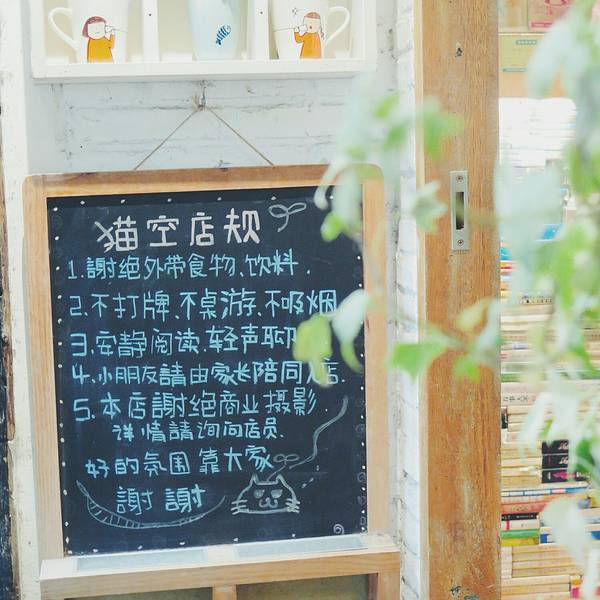 猫空店规
1.謝绝外带食物、饮料.
2.不打牌.不桌游.不吸烟
3.安静阅读.轻声
4.小朋友請由家长陪同店.
5.本店謝绝商业摄影.
详情請询问店员.
好的氛围靠大家
謝謝